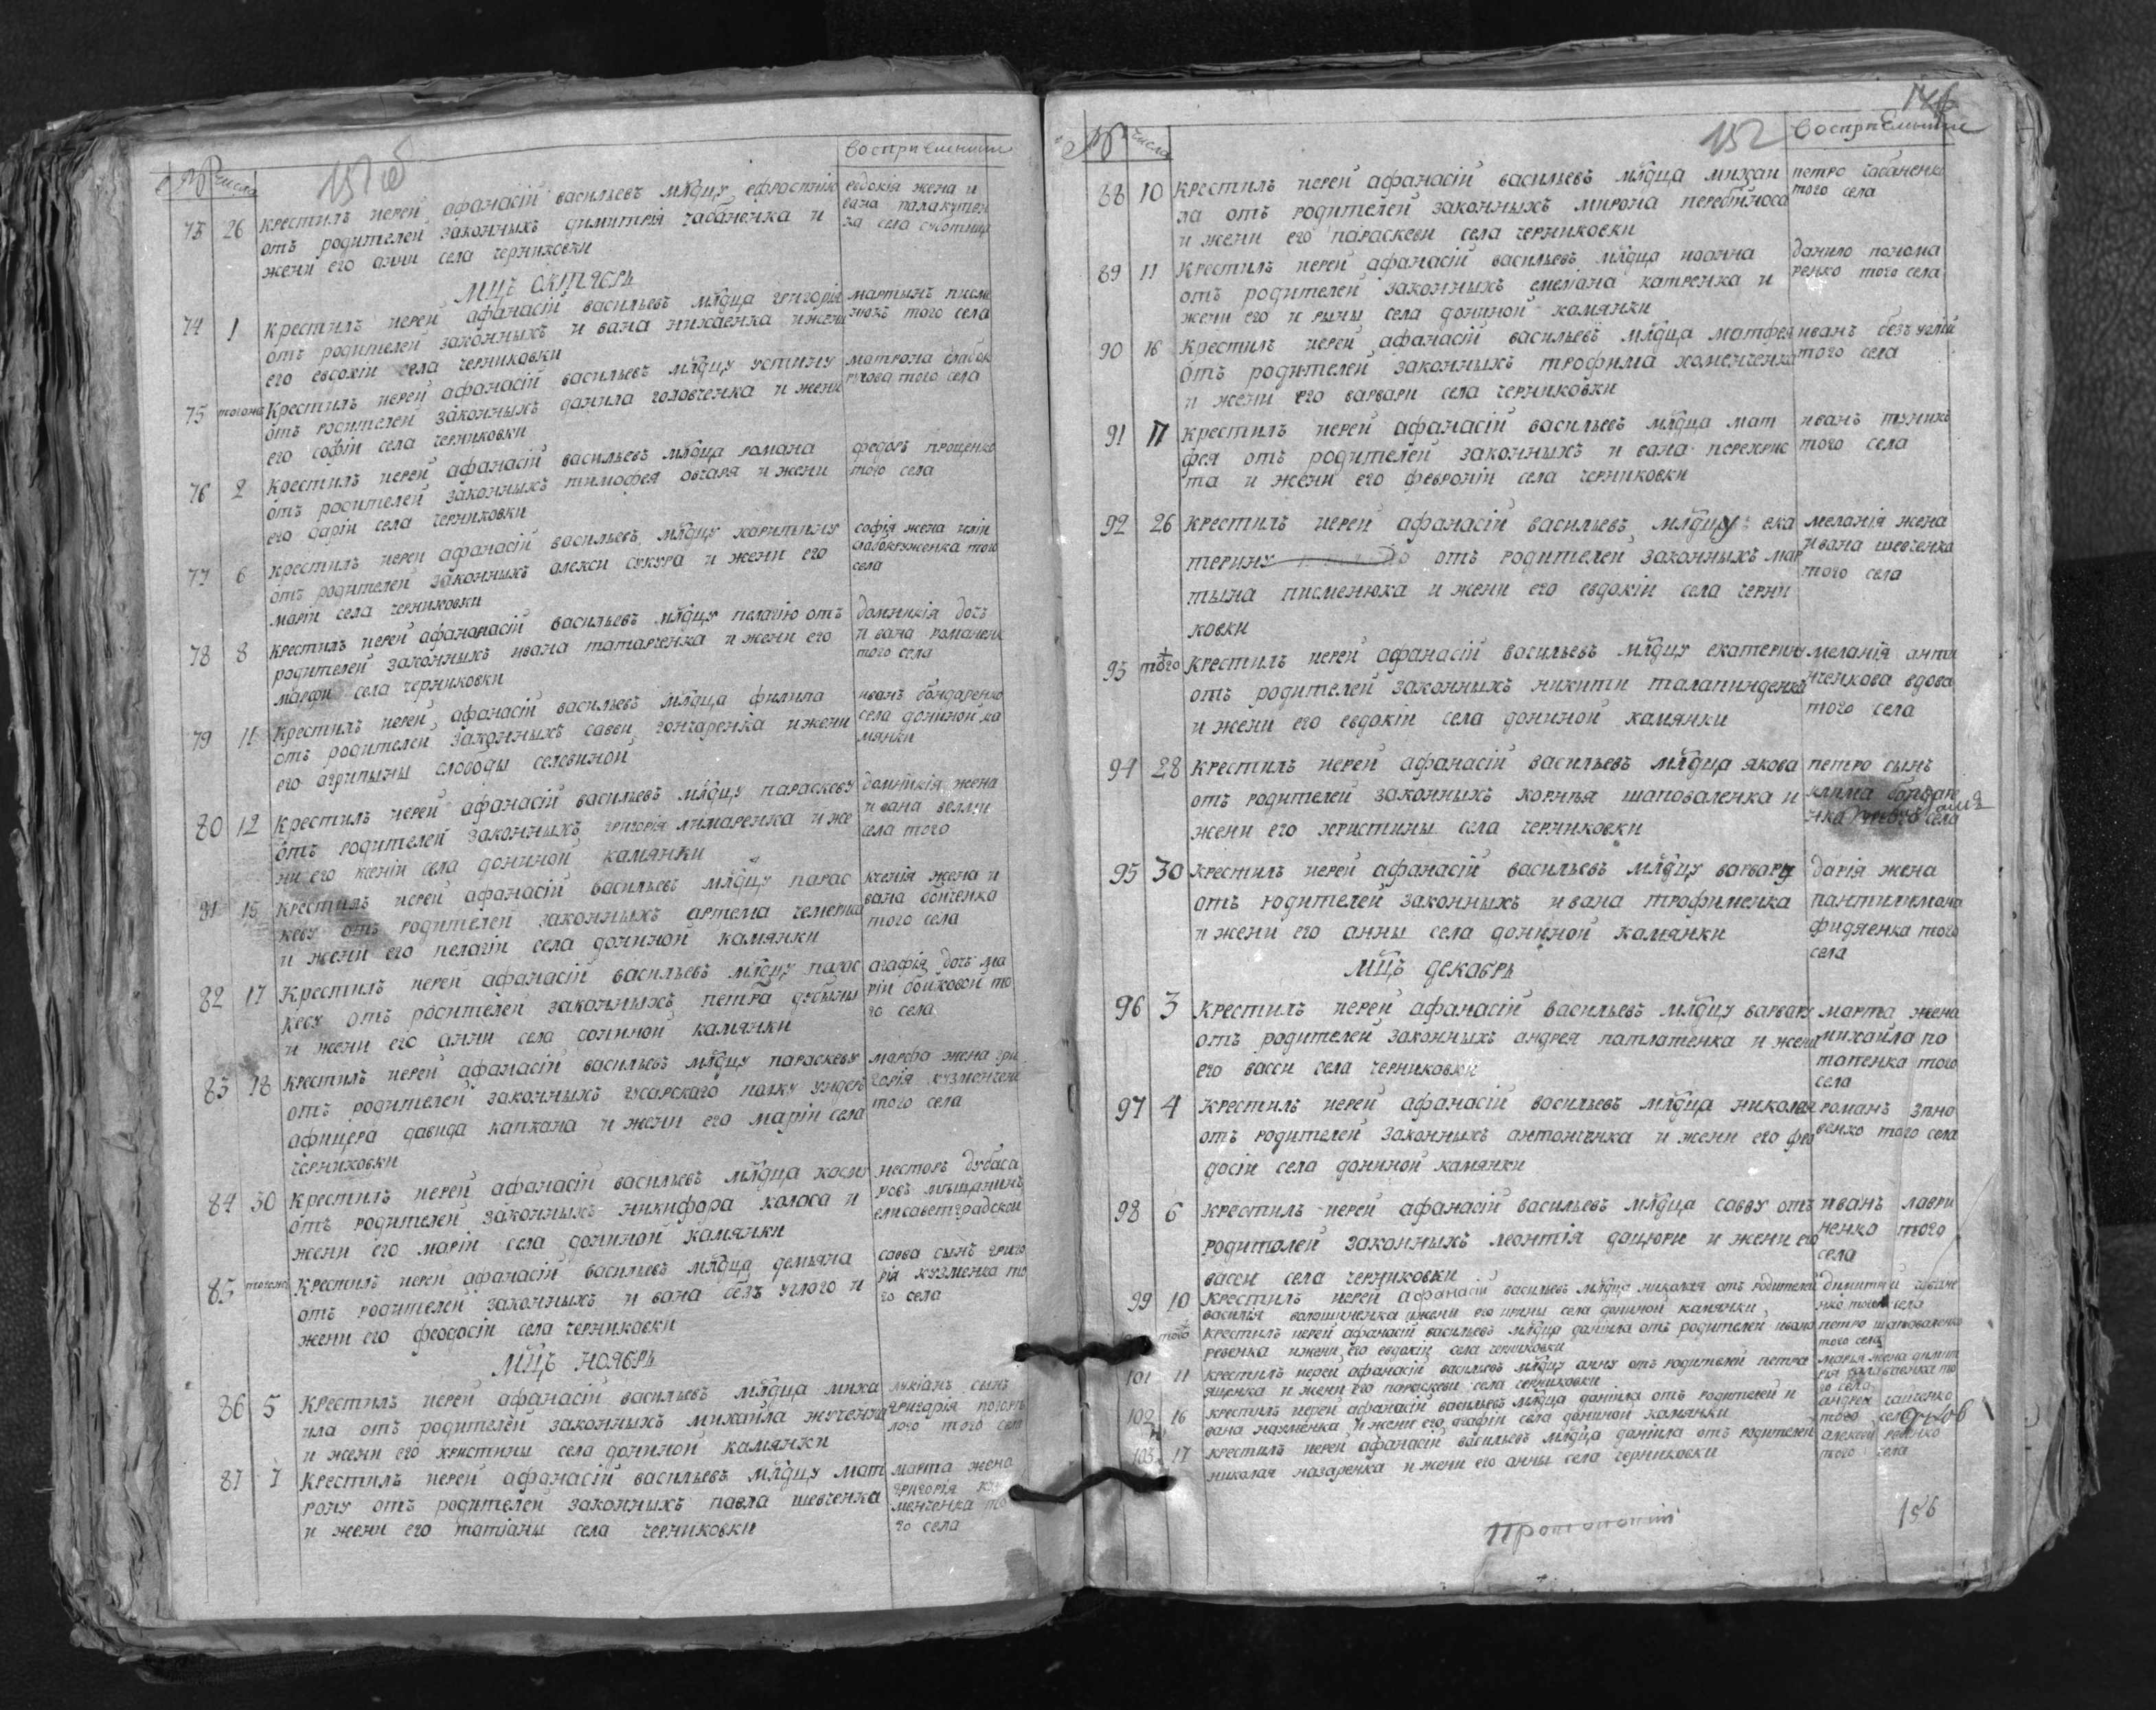 № числа 151 об воспріемники
73 26 крестилъ иерей афанасій васильевъ млдцу ефросинію
отъ родителей законныхъ димитрія чабаненка и
жени его анни села черниковки
евдокія жена и
вана палакутен
ка села суботицъ
мцъ октябрь
74 1 крестилъ иерей афанасій васильевъ млдца григорія
отъ родителей законныхъ и вана нихаенка и жени
его евдокіи села черниковки
мартынъ писме
нюкъ того села
75 тогожъ крестилъ иерей афанасій васильевъ млдцу устину
отъ родителей законныхъ данила головченка и жени
его софіи села черниковки
матрона слабок
рухова того села
76 2 крестилъ иерей афанасій васильевъ млдца романа
отъ родителей законныхъ тимофея овчаря и жени
его дарїи села черниковки
федоръ проценко
того села
77 6 крестилъ иерей афанасій васильевъ млдцу харитину
отъ родителей законныхъ алекси сукура и жени его
маріи села черниковки
софія жена иліи
слабокруженка того
села
78 8 крестилъ иерей афанапасій васильевъ млдцу пелагію отъ
родителей законныхъ ивана татарченка и жени его
марфи села черниковки
домникія дочъ
и вана романенк
того села
79 11 крестилъ иерей афанасій васильевъ млдца филипа
отъ родителей законныхъ савви гончаренка и жени
его агрипыны слободы селевиной
иванъ бондаренко
села дониной ка
мянки
80 12 крестилъ иерей афанасій васильевъ млдцу параскеву
отъ родителей законныхъ григорія лимаренка и же
ни его ксеніи села дониной камянки
домникія жена
и вана
села того
81 15 крестилъ иерей афанасій васильевъ млдцу парас
кеву отъ родителей законныхъ артема чемерки
и жени его пелагіи села дониной камянки
ксенія жена и
вана бойченка
того села
82 17 крестилъ иерей афанасій васильевъ млдцу парас
кеву отъ родителей законныхъ петра дубыны
и жени его анни села дониной камянки
агафія дочъ ма
ріи бойковой то
го села
83 18 крестилъ иерей афанасій васильевъ млдцу параскеву
отъ родителей законныхъ гусарскаго полку ундеръ
афицера давида капкана и жени его маріи села
черниковки
марфа жена гри
горія кузменченк
того села
84 30 крестилъ иерей афанасій васильевъ млдца косму
отъ родителей законныхъ никифора колоса и
жени его маріи села дониной камянки
несторъ дубаса
ровъ мѣщанинъ
елисаветградской
85 тогожъ крестилъ иерей афанасій васильевъ млдца демьяна
отъ родителей законныхъ и вана безъ углого и
жени его феодосіи села черниковки
савва сынъ григо
рія кузменка то
го села
мцъ ноябрь
86 5 крестилъ иерей афанасій васильевъ млдца миха
ила отъ родителей законныхъ михаила жученка
и жени его христины села дониной камянки
лукіанъ сынъ
григорія
того села
87 7 крестилъ иерей афанасій васильевъ млдцу мат
рону отъ родителей законныхъ павла шевченка
и жени его татіаны села черниковки
марта жена
григорія куз
менченка то
го села
146
№ числа 152 воспріемники
88 10 крестилъ иерей афанасій васильевъ млдца михаи
ла отъ родителей законныхъ мирона перебійноса
и жени его параскеви села черниковки
петро чабаненко
того села
89 11 крестилъ иерей афанасій васильевъ млдца иоанна
отъ родителей законныхъ емеліана катренка и
жени его и рыны села дониной камянки
данило понома
ренко того села
90 16 крестилъ иерей афанасій васильевъ млдца матфея
отъ родителей законныхъ трофима хоменченка
и жени его варвари села черниковки
иванъ безъ углій
того села
91 17 крестилъ иерей афанасій васильевъ млдца мат
фея отъ родителей законныхъ и вана перехрис
та и жени его февроніи села черниковки
иванъ тунихъ
того села
92 26 крестилъ иерей афанасій васильевъ млдцу ека
терину отъ родителей законныхъ мар
тына писменюка и жени его евдокіи села черни
ковки
меланія жена
ивана шевченка
того села
93 того крестилъ иерей афанасій васильевъ млдцу екатерину
отъ родителей законныхъ никити талапинденка
и жени его евдокіи села дониной камянки
меланія анти
нченкова вдова
того села
94 28 крестилъ иерей афанасій васильевъ млдца якова
отъ родителей законныхъ корнія шаповаленка и
жени его христины села черниковки
петро сынъ
клима
села
95 30 крестилъ иерей афанасій васильевъ млдцу варвару
отъ родителей законныхъ ивана трофименка
и жени его анны села дониной камянки
дарія жена
пантилимона
фидяенка того
села
мцъ декабрь
96 3 крестилъ иерей афанасій васильевъ млдцу варвару
отъ родителей законныхъ андрея патлатенка и жени
его васси села черниковки
марта жена
михаила по
тапенка того
села
97 4 крестилъ иерей афанасій васильевъ млдца николая
отъ родителей законныхъ антоненка и жени его фео
досіи села дониной камянки
романъ зѣно
венко того села
98 6 крестилъ иерей афанасій васильевъ млдца савву отъ
родителей законныхъ леонтія дацюри и жени его
васси села черниковки
иванъ лаври
ненко того
села
99 10 крестилъ иерей афанасій васильевъ млдца николая отъ родителей
василія волошиненка и жени его ирины села дониной камянки
димитрій чабане
нко того села
того крестилъ иерей афанасій васильевъ млдца данила отъ родителей ивана
ревенка и жени его евдокіи села черниковки
петро шаповаленко
того села
101 11 крестилъ иерей афанасій васильевъ млдцу анну отъ родителей петра
яценка и жени его параскеви села черниковки
марья жена димит
рія то
го села
102 16 крестилъ иерей афанасій васильевъ млдца данїила отъ родителей и
вана науменка и жени его агафіи села дониной камянки
андрей гайченко
того села
103 17 крестилъ иерей афанасій васильевъ млдца даніила отъ родителей
николая назаренка и жени его анны села черниковки
алексѣй ревенко
того села
Протопопій
156